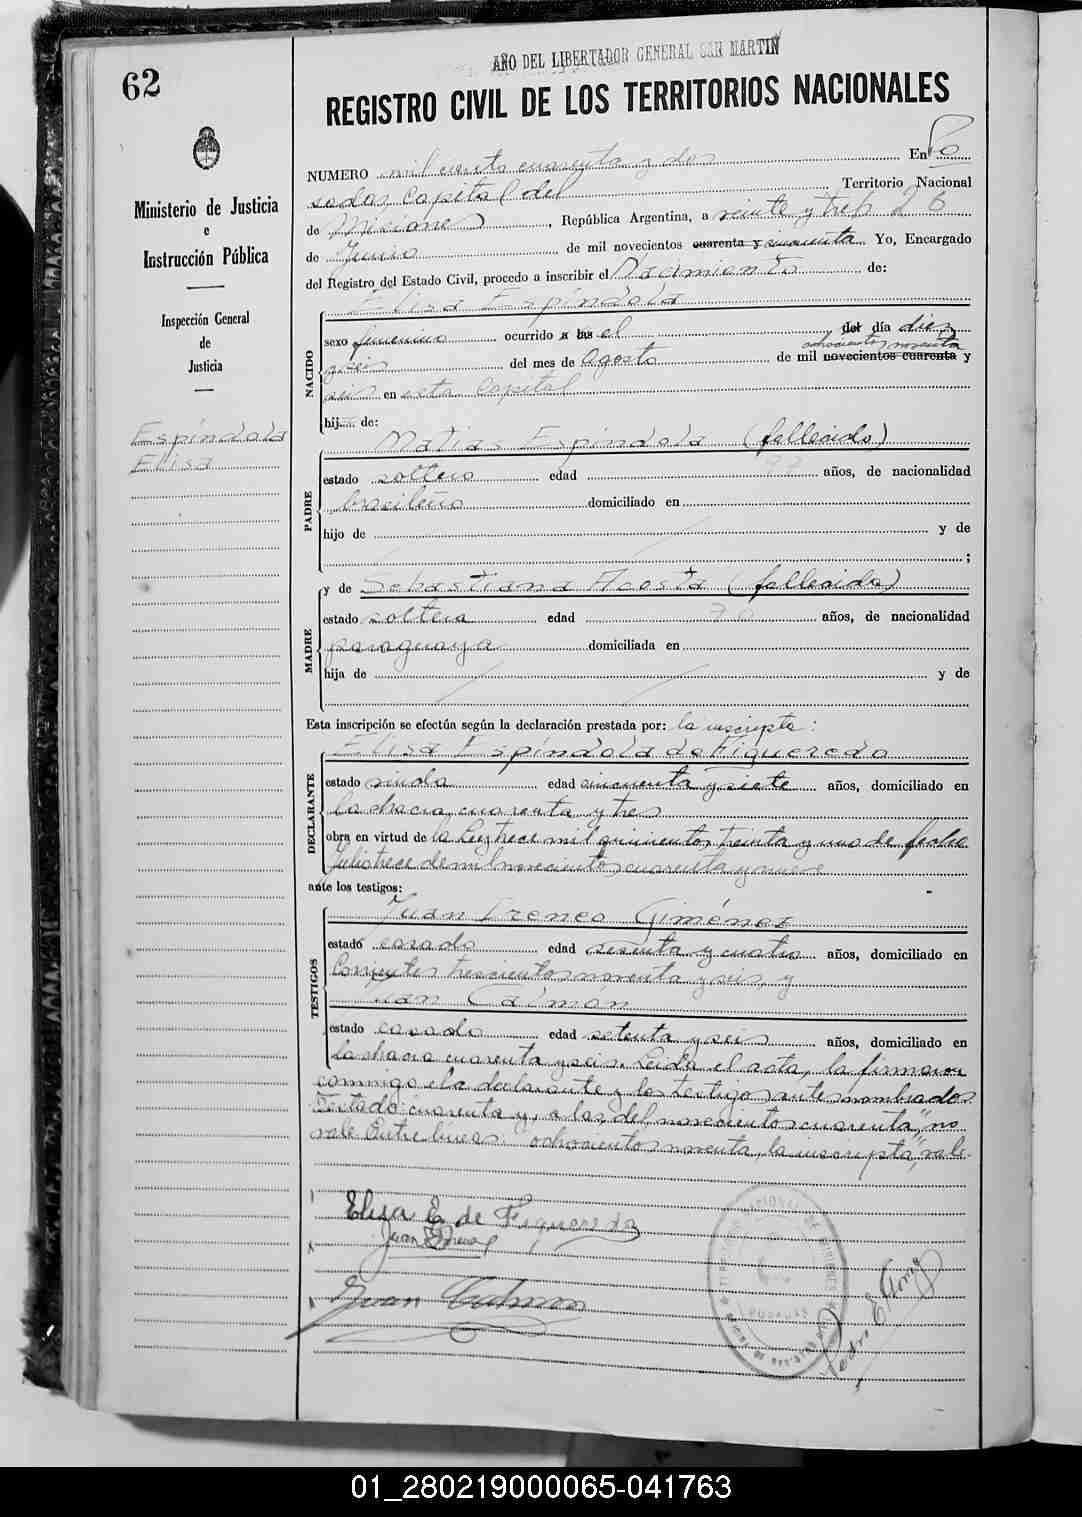 AÑO DEL LIBERTADOR GENERAL SAN MARTIN
62
REGISTRO CIVIL DE LOS TERRITORIOS NACIONALES
Ministerio de Justicia
e
Instrucción Pública
Inspección General
de
Justicia
Espíndola
Elisa
NUMERO mil ciento cuarenta y dos En Po
sadas, Capital del Territorio Nacional
de Misiones, República Argentina, a veinte y tres 23
de Junio de mil novecientos cuarenta y cincuenta Yo, Encargado
del Registro del Estado Civil, procedo a inscribir el Nacimiento de:
NACIDO
Elisa Espíndola
sexo femenino ocurrido a las el del día diez
ochocientos noventa
y seis del mes de Agosto de mil novecientos cuarenta y
seis en esta Capital
hij de:
PADRE
Matias Espíndola (fallecido)
estado soltero edad años, de nacionalidad
brasileño domiciliado en
hijo de y de
;
MADRE
y de Sebastiana Acosta (fallecida)
estado soltera edad años, de nacionalidad
paraguaya domiciliada en
hija de y de
Esta inscripción se efectúa según la declaración prestada por: la inscripta:
DECLARANTE
Elisa Espíndola de Figueredo
estado viuda edad cincuenta y siete años, domiciliado en
la chacra cuarenta y tres
obra en virtud de la Ley trece mil quinientos treinta y uno de fecha
Julio trece de mil novecientos cuarenta y nueve
ante los testigos:
TESTIGOS
Juan Ireneo Giménez
estado casado edad sesenta y cuatro años, domiciliado en
Corrientes trescientos noventa y seis, y
Juan Calmón
estado casado edad setenta y seis años, domiciliado en
la chacra cuarenta y seis. Leida el acta, la firmaron
conmigo el la declarante y los testigos antes nombrados.
Testado: cuarenta y, a las, del, novecientos cuarenta," no
vale. Entre lineas: ochocientos noventa, la inscripta", vale.
Elisa E de Figueredo
Juan
Juan Calmon
POSADAS
Pedro E
01_280219000065-041763